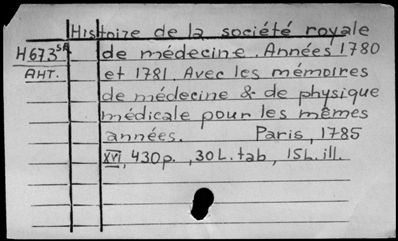 Histoire de la société royale
H673sr de médecine. Années 1780
AHT. et 1781. Avec les mémoires
de médecine & de physique
médicale pour les mêmes
années. Paris, 1785
XVI, 430p., 30 L. tab, 15 L. ill.